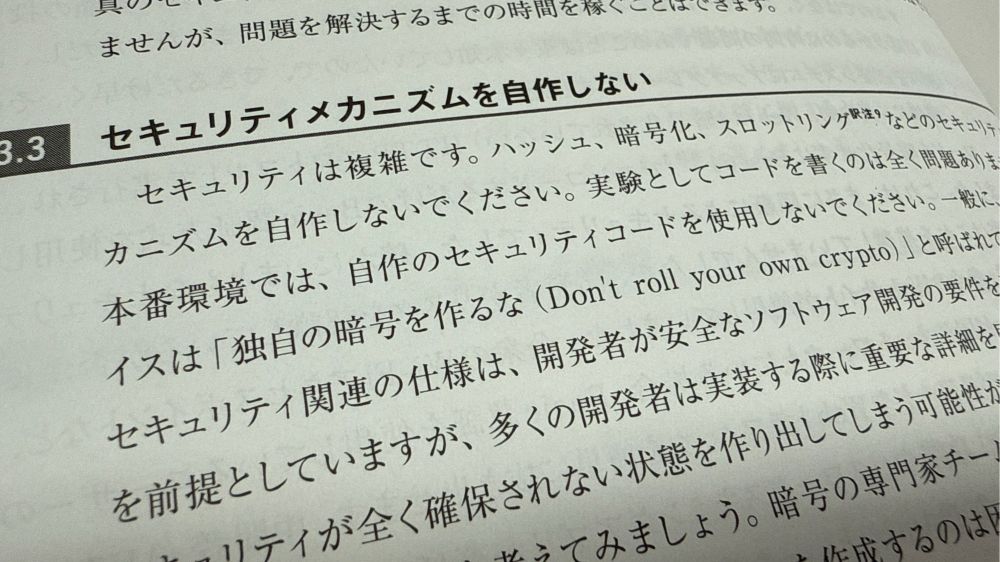 真のセキ
ませんが、問題を解決するまでの時間を稼ぐことはできます。
3.3 セキュリティメカニズムを自作しない
セキュリティは複雑です。ハッシュ、暗号化、スロットリング訳注9などのセキュリテ
カニズムを自作しないでください。実験としてコードを書くのは全く問題ありま
本番環境では、自作のセキュリティコードを使用しないでください。一般に、
イスは「独自の暗号を作るな（Don't roll your own crypto）」と呼ばれて
セキュリティ関連の仕様は、開発者が安全なソフトウェア開発の要件を
を前提としていますが、多くの開発者は実装する際に重要な詳細を
キュリティが全く確保されない状態を作り出してしまう可能性が
考えてみましょう。暗号の専門家チーム
を作成するのは